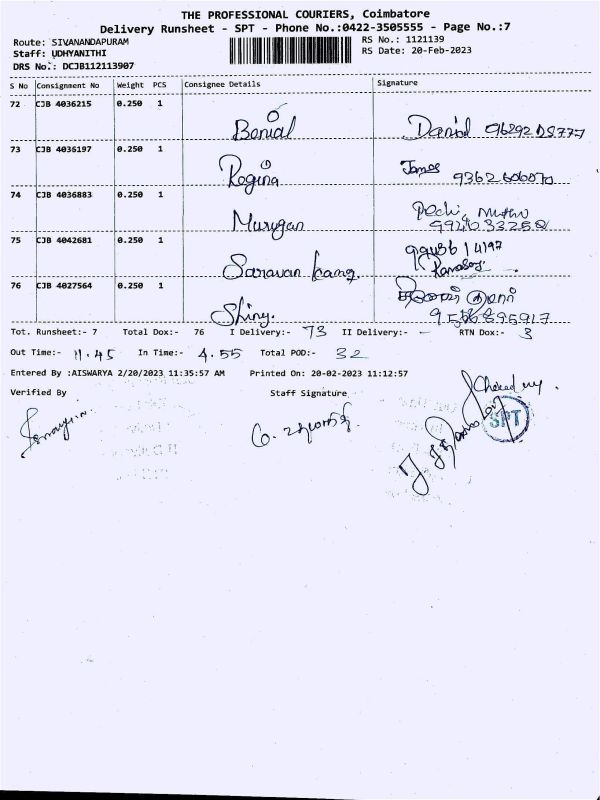 THE PROFESSIONAL COURIERS, Coimbatore
Delivery Runsheet - SPT - Phone No.:0422-3505555 - Page No.:7
Route: SIVANANDAPURAM
RS No.: 1121139
Staff: UDHYANITHI
RS Date: 20-Feb-2023
DRS No.: DCJB112113907
S No Consignment No Weight PCS Consignee Details Signature
72 CJB 4036215 0.250 1
Danial
73 CJB 4036197 0.250 1
Regina James
74 CJB 4036883 0.250 1
Murugan Pechi Muthu
75 CJB 4042681 0.250 1
Saravan
76 CJB 4027564 0.250 1
Shiny.
Tot. Runsheet:- 7 Total Dox:- 76 I Delivery:- 73 II Delivery:- - RTN Dox:- 3
Out Time:- 11.45 In Time:- 4.55 Total POD:- 32
Entered By :AISWARYA 2/20/2023 11:35:57 AM Printed On: 20-02-2023 11:12:57
Verified By Staff Signature
SPT